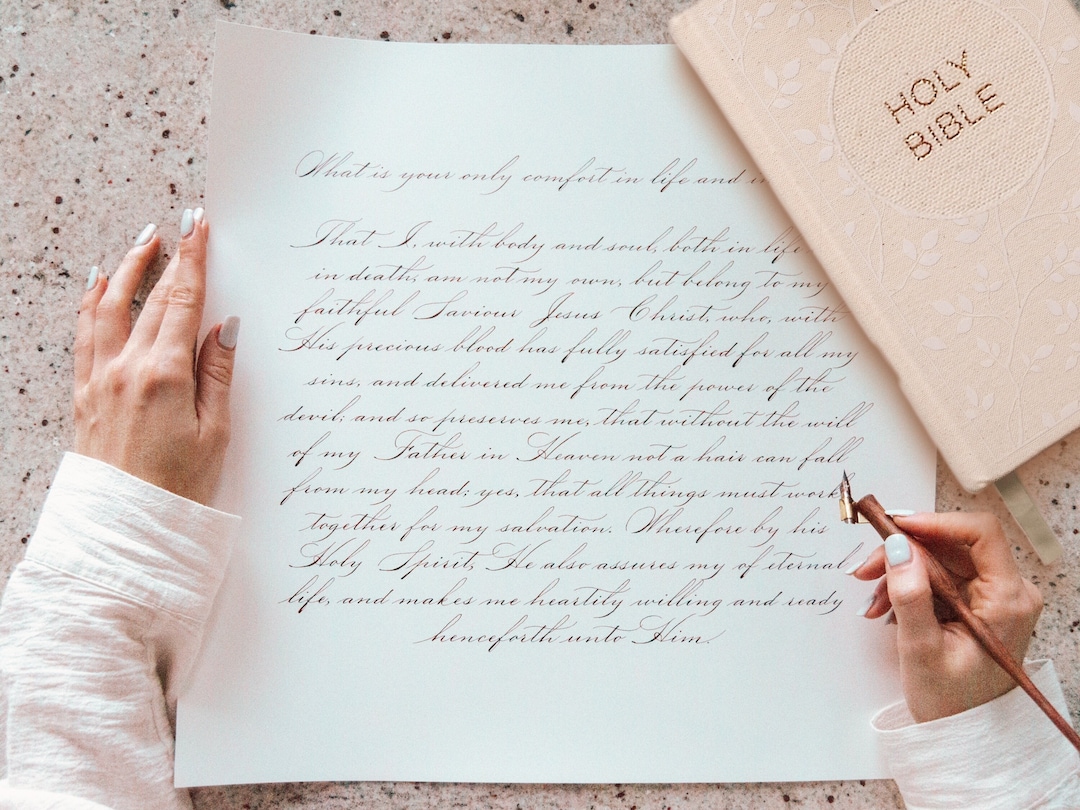 HOLY
BIBLE
What is your only comfort in life and
That I, with body and soul, both in life
in death, am not my own, but belong to my
faithful Saviour Jesus Christ, who, with
His precious blood has fully satisfied for all my
sins, and delivered me from the power of the
devil; and so preserves me, that without the will
of my Father in Heaven not a hair can fall
from my head; yes, that all things must work
together for my salvation. Wherefore by his
Holy Spirit, He also assures my of eternal
life, and makes me heartily willing and ready
henceforth unto Him.